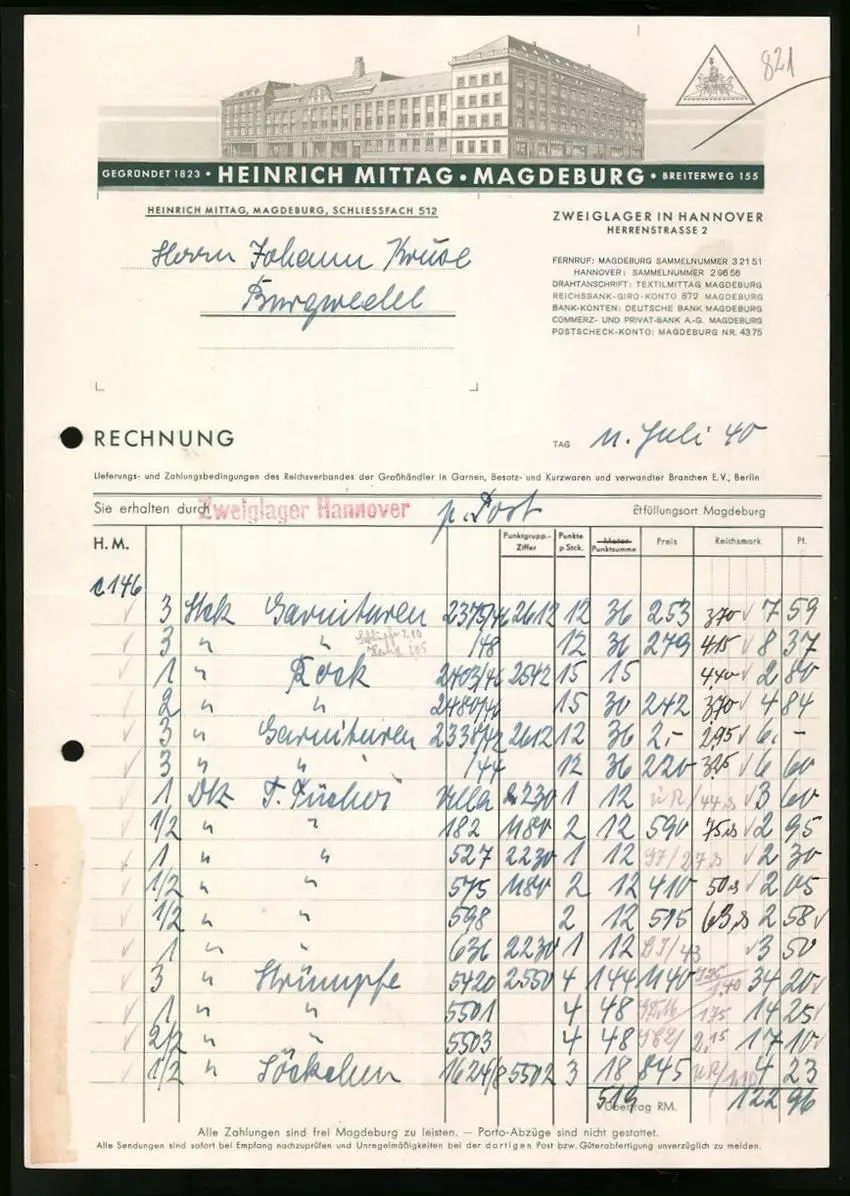 821
GEGRÜNDET 1823 • HEINRICH MITTAG • MAGDEBURG • BREITERWEG 155
HEINRICH MITTAG, MAGDEBURG, SCHLIESSFACH 512
Herrn Johann Kruse
Burgwedel
ZWEIGLAGER IN HANNOVER
HERRENSTRASSE 2
FERNRUF: MAGDEBURG SAMMELNUMMER 32151
HANNOVER: SAMMELNUMMER 29656
DRAHTANSCHRIFT: TEXTILMITTAG MAGDEBURG
REICHSBANK-GIRO-KONTO 872 MAGDEBURG
BANK-KONTEN: DEUTSCHE BANK MAGDEBURG
COMMERZ- UND PRIVAT-BANK A.-G. MAGDEBURG
POSTSCHECK-KONTO: MAGDEBURG NR. 4375
RECHNUNG
TAG 11. Juli 40
Lieferungs- und Zahlungsbedingungen des Reichsverbandes der Großhändler in Garnen, Besatz- und Kurzwaren und verwandter Branchen E.V., Berlin
Sie erhalten durch Zweiglager Hannover p. Post Erfüllungsort Magdeburg
H.M. Punktgrupp.-Ziffer Punkte p Stck. Meter Punktsumme Preis Reichsmark Pf.
c 146
3 Stck Garnituren 2375/46 2612 12 36 253 370 7 59
3 " " /48 12 36 279 415 8 37
1 " Rock 2403/46 2542 15 15 440 2 80
2 " " 2480/46 15 30 242 370 4 84
3 " Garnituren 2338/42 2612 12 36 2,- 295 6,-
3 " " /44 12 36 220 325 6 60
1 Dtz T. Tücher 2230 1 12 /44 3 60
1/2 " " 182 1180 2 12 590 75 2 95
1 " " 527 2230 1 12 /27 2 30
1/2 " " 575 1180 2 12 410 50 2 05
1/2 " " 598 2 12 515 63 2 58
1 " " 636 2230 1 12 /43 3 50
3 " Strümpfe 5420 2550 4 144 1140 34 20
1 " " 5501 4 48 175 14 25
2/2 " " 5503 4 48 2,15 17 10
1/2 " Söckchen 1624/8 5502 3 18 845 4 23
519 Übertrag RM. 122 96
Alle Zahlungen sind frei Magdeburg zu leisten. — Porto-Abzüge sind nicht gestattet.
Alle Sendungen sind sofort bei Empfang nachzuprüfen und Unregelmäßigkeiten bei der dortigen Post bzw. Güterabfertigung unverzüglich zu melden.